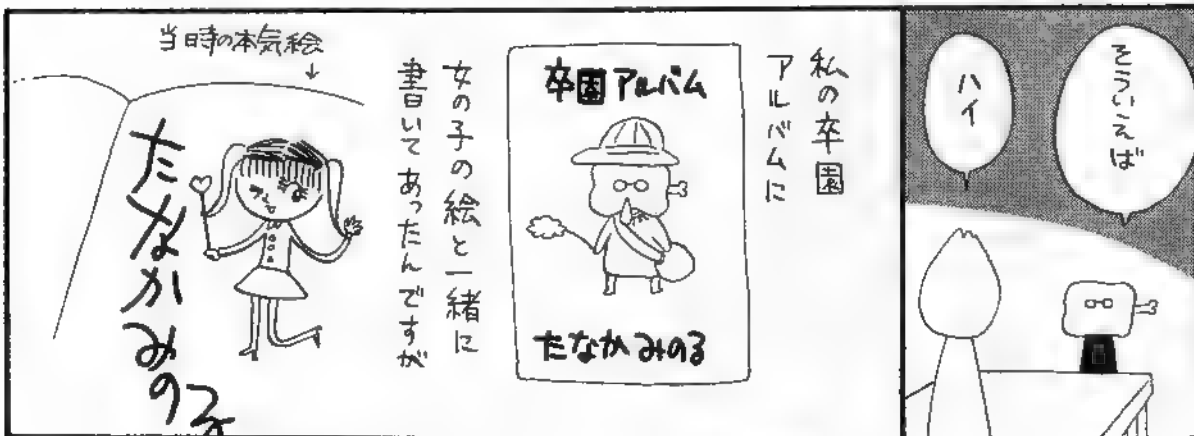 そういえば
ハイ
私の卒園
アルバムに
卒園アルバム
たなかみのる
女の子の絵と一緒に
書いてあったんですが
当時の本気絵
↓
たなかみのる